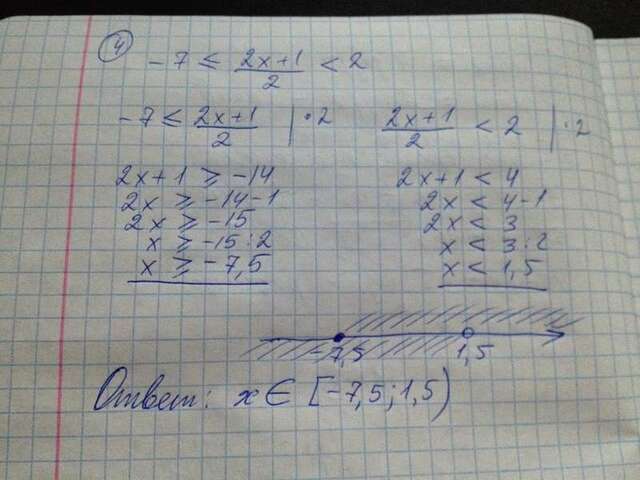 ④ -7 ≤ (2x+1)/2 < 2
-7 ≤ (2x+1)/2 | •2
2x+1 ⩾ -14
2x ⩾ -14-1
2x ⩾ -15
x ⩾ -15:2
x ⩾ -7,5
(2x+1)/2 < 2 | •2
2x+1 < 4
2x < 4-1
2x < 3
x < 3:2
x < 1,5
-7,5 1,5
Ответ: x ∈ [-7,5;1,5)